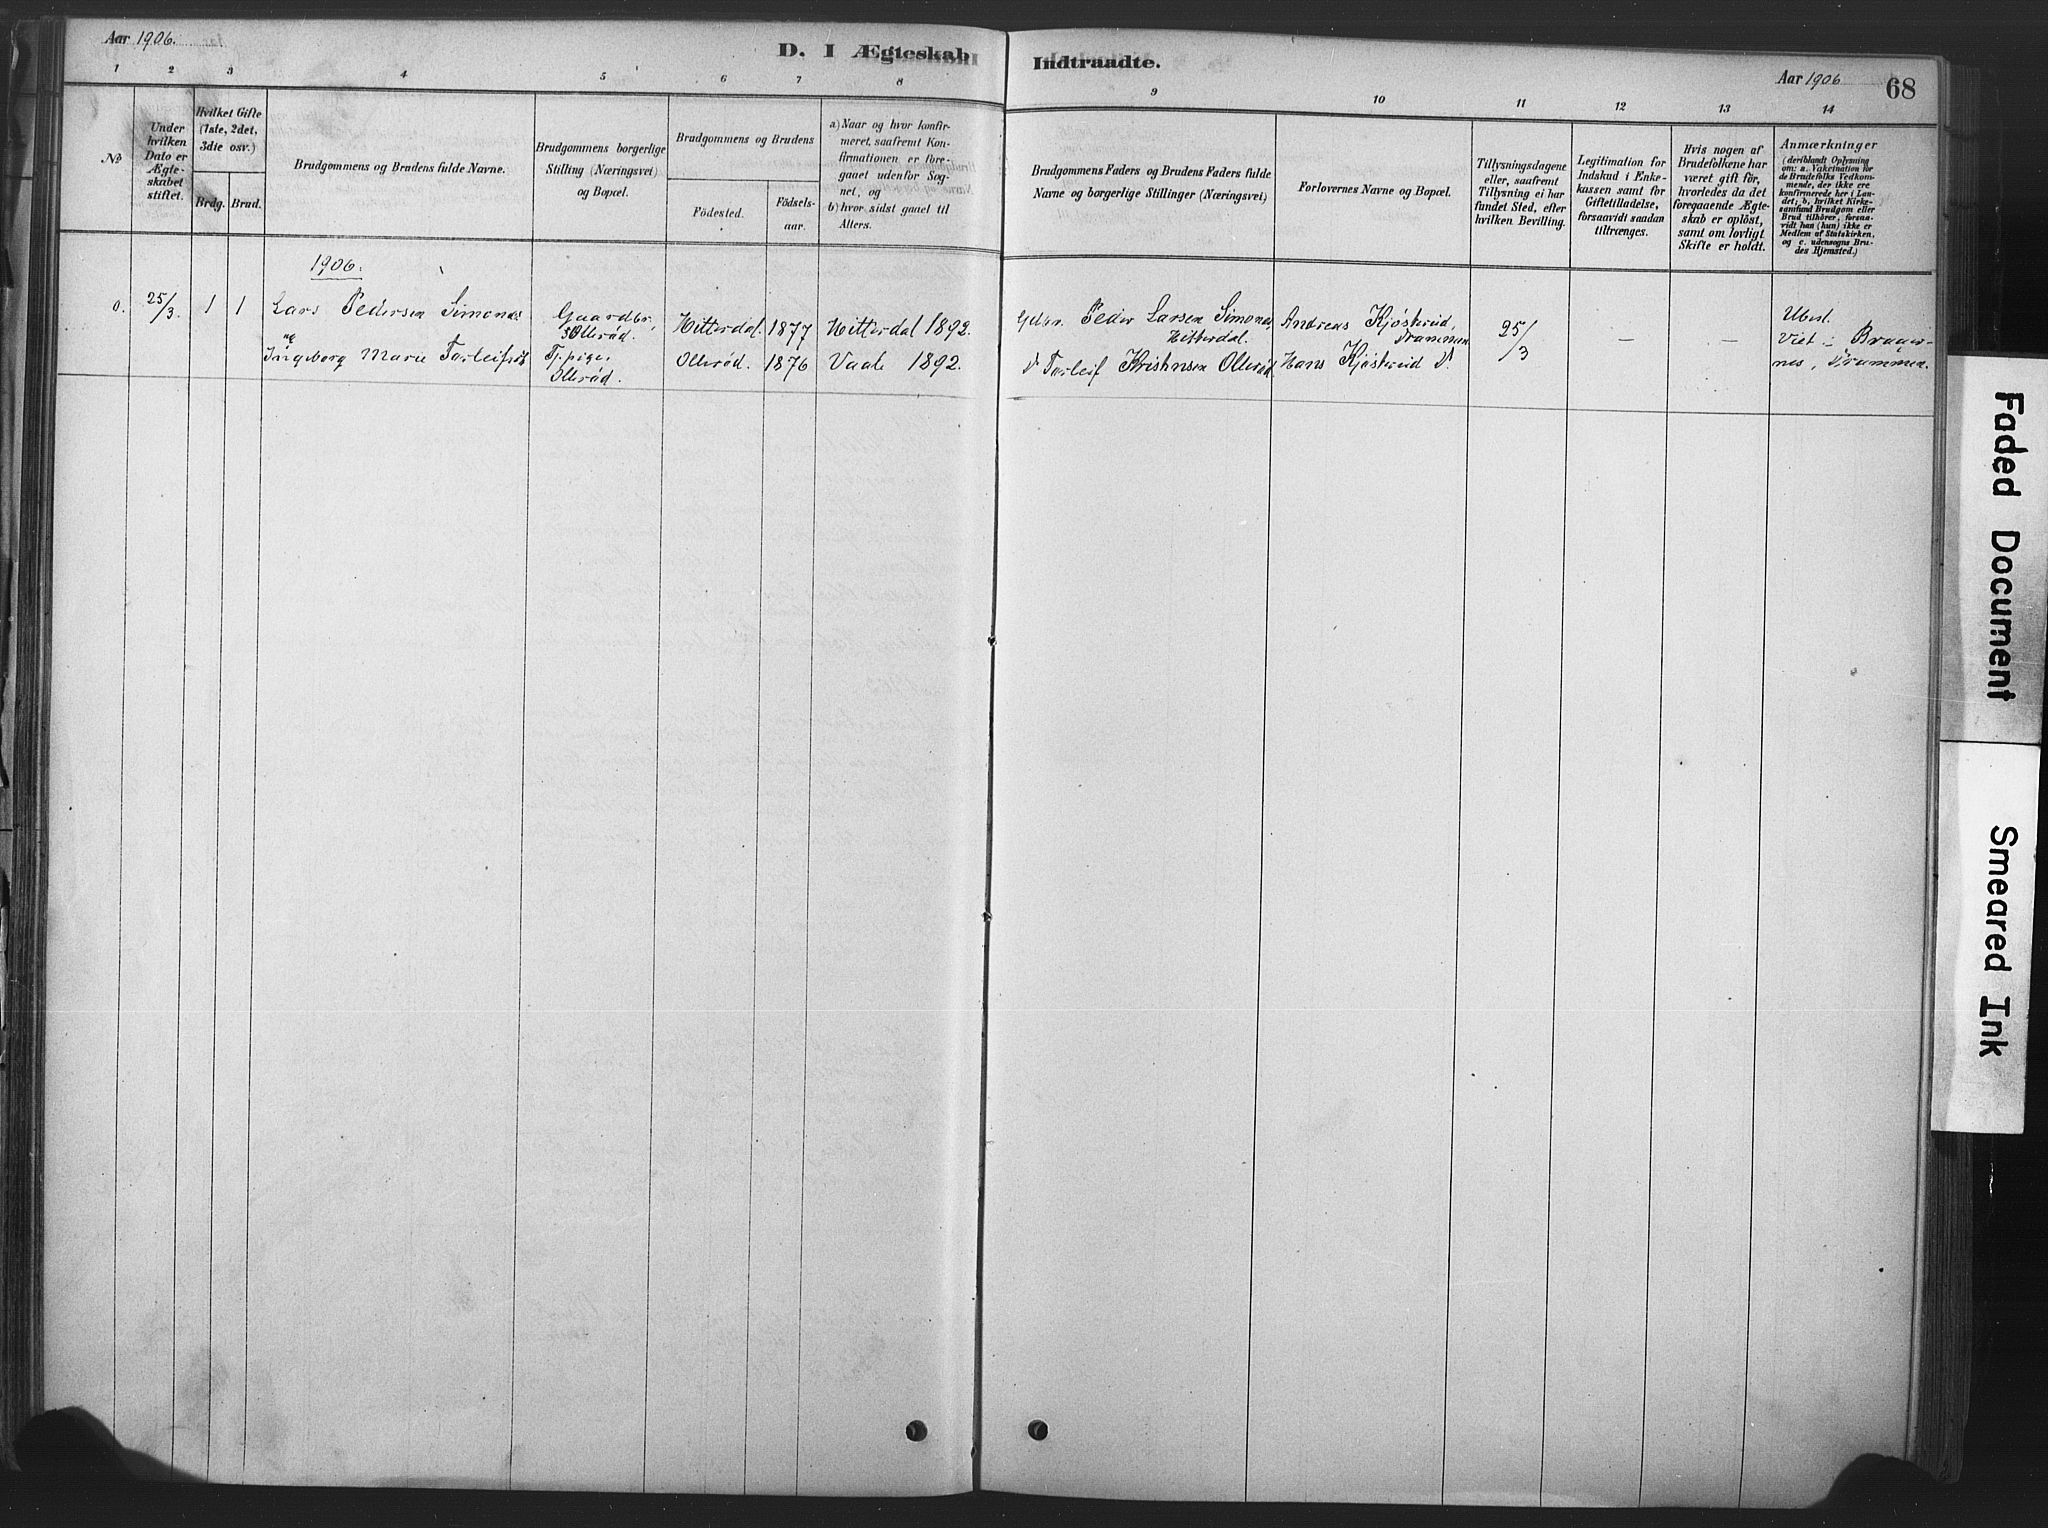 Aar 1906.
D. I Ægteskab Indtraadte.
Aar 1906
68
1 2 3 4 5 6 7 8 9 10 11 12 13 14
No
Under hvilken Dato er Ægte-skabet stiftet.
Hvilket Gifte (1ste, 2det, 3die osv.)
Brdg. Brud.
Brudgommens og Brudens fulde Navne.
Brudgommens borgerlige
Stilling (Næringsvei)
og Bopæl.
Brudgommens og Brudens
Födested.
Födsels-
aar.
a) Naar og hvor konfir-
meret, saafremt Kon-
firmationen er fore-
gaaet udenfor Sog-
net, og
b) hvor sidst gaaet til
Alters.
Brudgommens Faders og Brudens Faders fulde
Navne og borgerlige Stillinger (Næringsvei)
Forlovernes Navne og Bopæl.
Tillysningsdagene
eller, saafremt
Tillysning ei har
fundet Sted, efter
hvilken Bevilling.
Legitimation for
Indskud i Enke-
kassen samt for
Giftetilladelse,
forsaavidt saadan
tiltrænges.
Hvis nogen af
Brudefolkene har
været gift för,
hvorledes da det
foregaaende Ægte-
skab er oplöst,
samt om lovligt
Skifte er holdt.
Anmærkninger
(deriblandt Oplysning
om: a. Vakcination for
de Brudefolks Vedkom-
mende, der ikke ere
konfirmerede her i Lan-
det; b, hvilket Kirke-
samfund Brudgom eller
Brud tilhörer, forsaa-
vidt han (hun) ikke er
Medlem af Statskirken,
og c. udensogns Bru-
des Hjemsted.)
1906.
0. 25/3. 1 1 Lars Pedersen Simones
og
Ingeborg Marie Torleifsdt
Gaardbr,
Ollerød.
Tj.pige,
Ollerød.
Hitterdal. 1877 Hitterdal 1892.
Ollerød. 1876 Vaale 1892.
Gdbr. Peder Larsen Simones,
Hitterdal.
Torleif Kristnsen Ollerød
Andreas Kjøsterud,
Drammen
Hans Kjøsterud D.
25/3
–
–
Ubest.
Viet i Brager-
nes, Drammen.
Faded Document
Smeared Ink